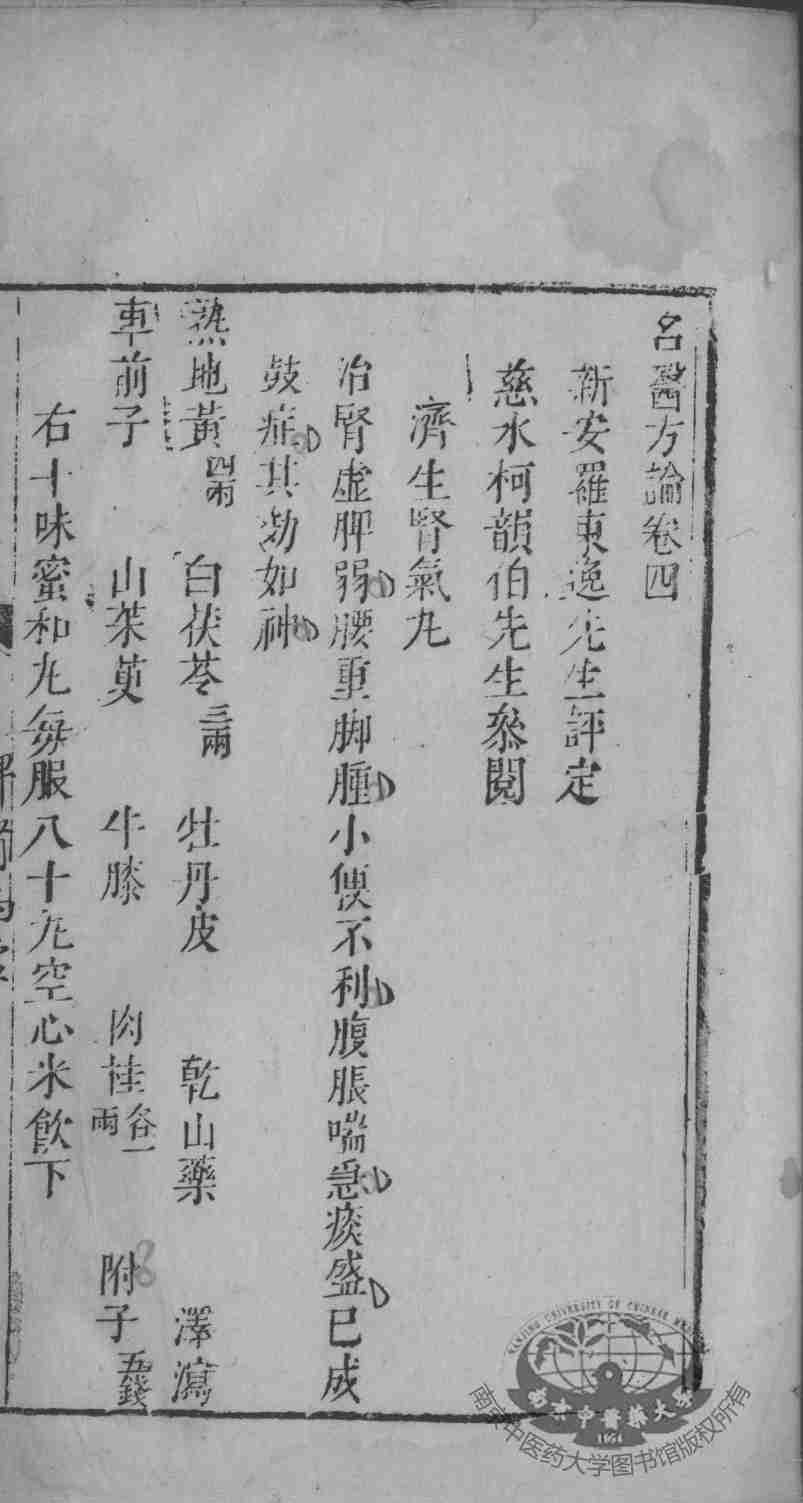 名醫方論卷四
新安羅東逸先生評定
慈水柯韻伯先生叅閱
濟生腎氣丸
治腎虛脾弱腰重脚腫小便不利腹脹喘急痰盛已成
鼓症其効如神
熟地黃四兩 白茯苓三兩 牡丹皮 乾山藥 澤瀉
車前子 山茱萸 牛膝 肉桂各一兩 附子五錢
右十味蜜和丸每服八十丸空心米飲下
NANJING UNIVERSITY OF CHINESE
南京中醫藥大學
1954
南京中医药大学图书馆版权所有